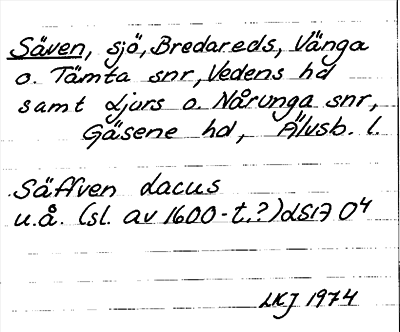 Säven, sjö, Bredareds, Vänga
o. Tämta snr, Vedens hd
samt Ljurs o. Nårunga snr,
Gäsene hd, Älvsb. l.
Säffven Lacus
u.å. (sl. av 1600-t.?) dS17 04
LKJ 1974